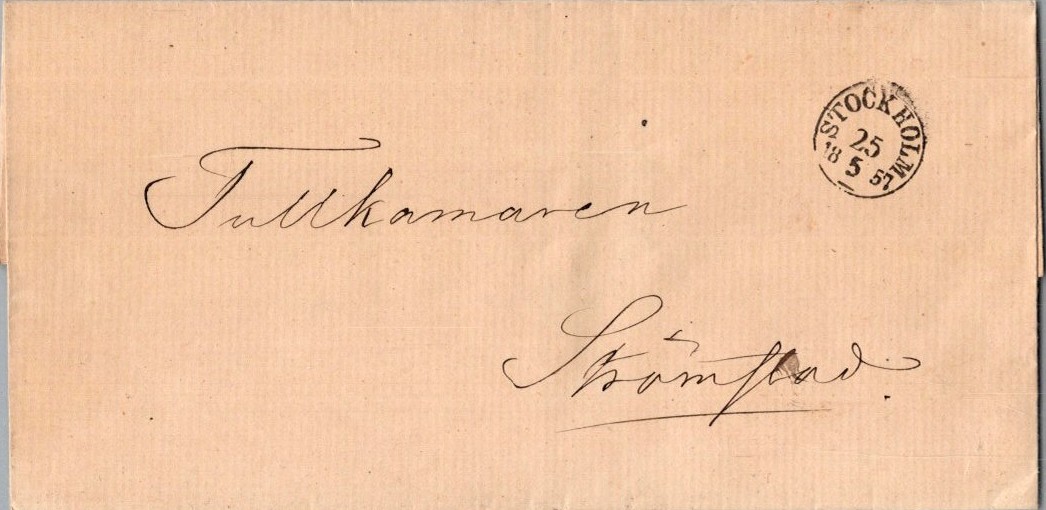 STOCKHOLM
25
18 5 57
Tullkamaren
Strömstad.